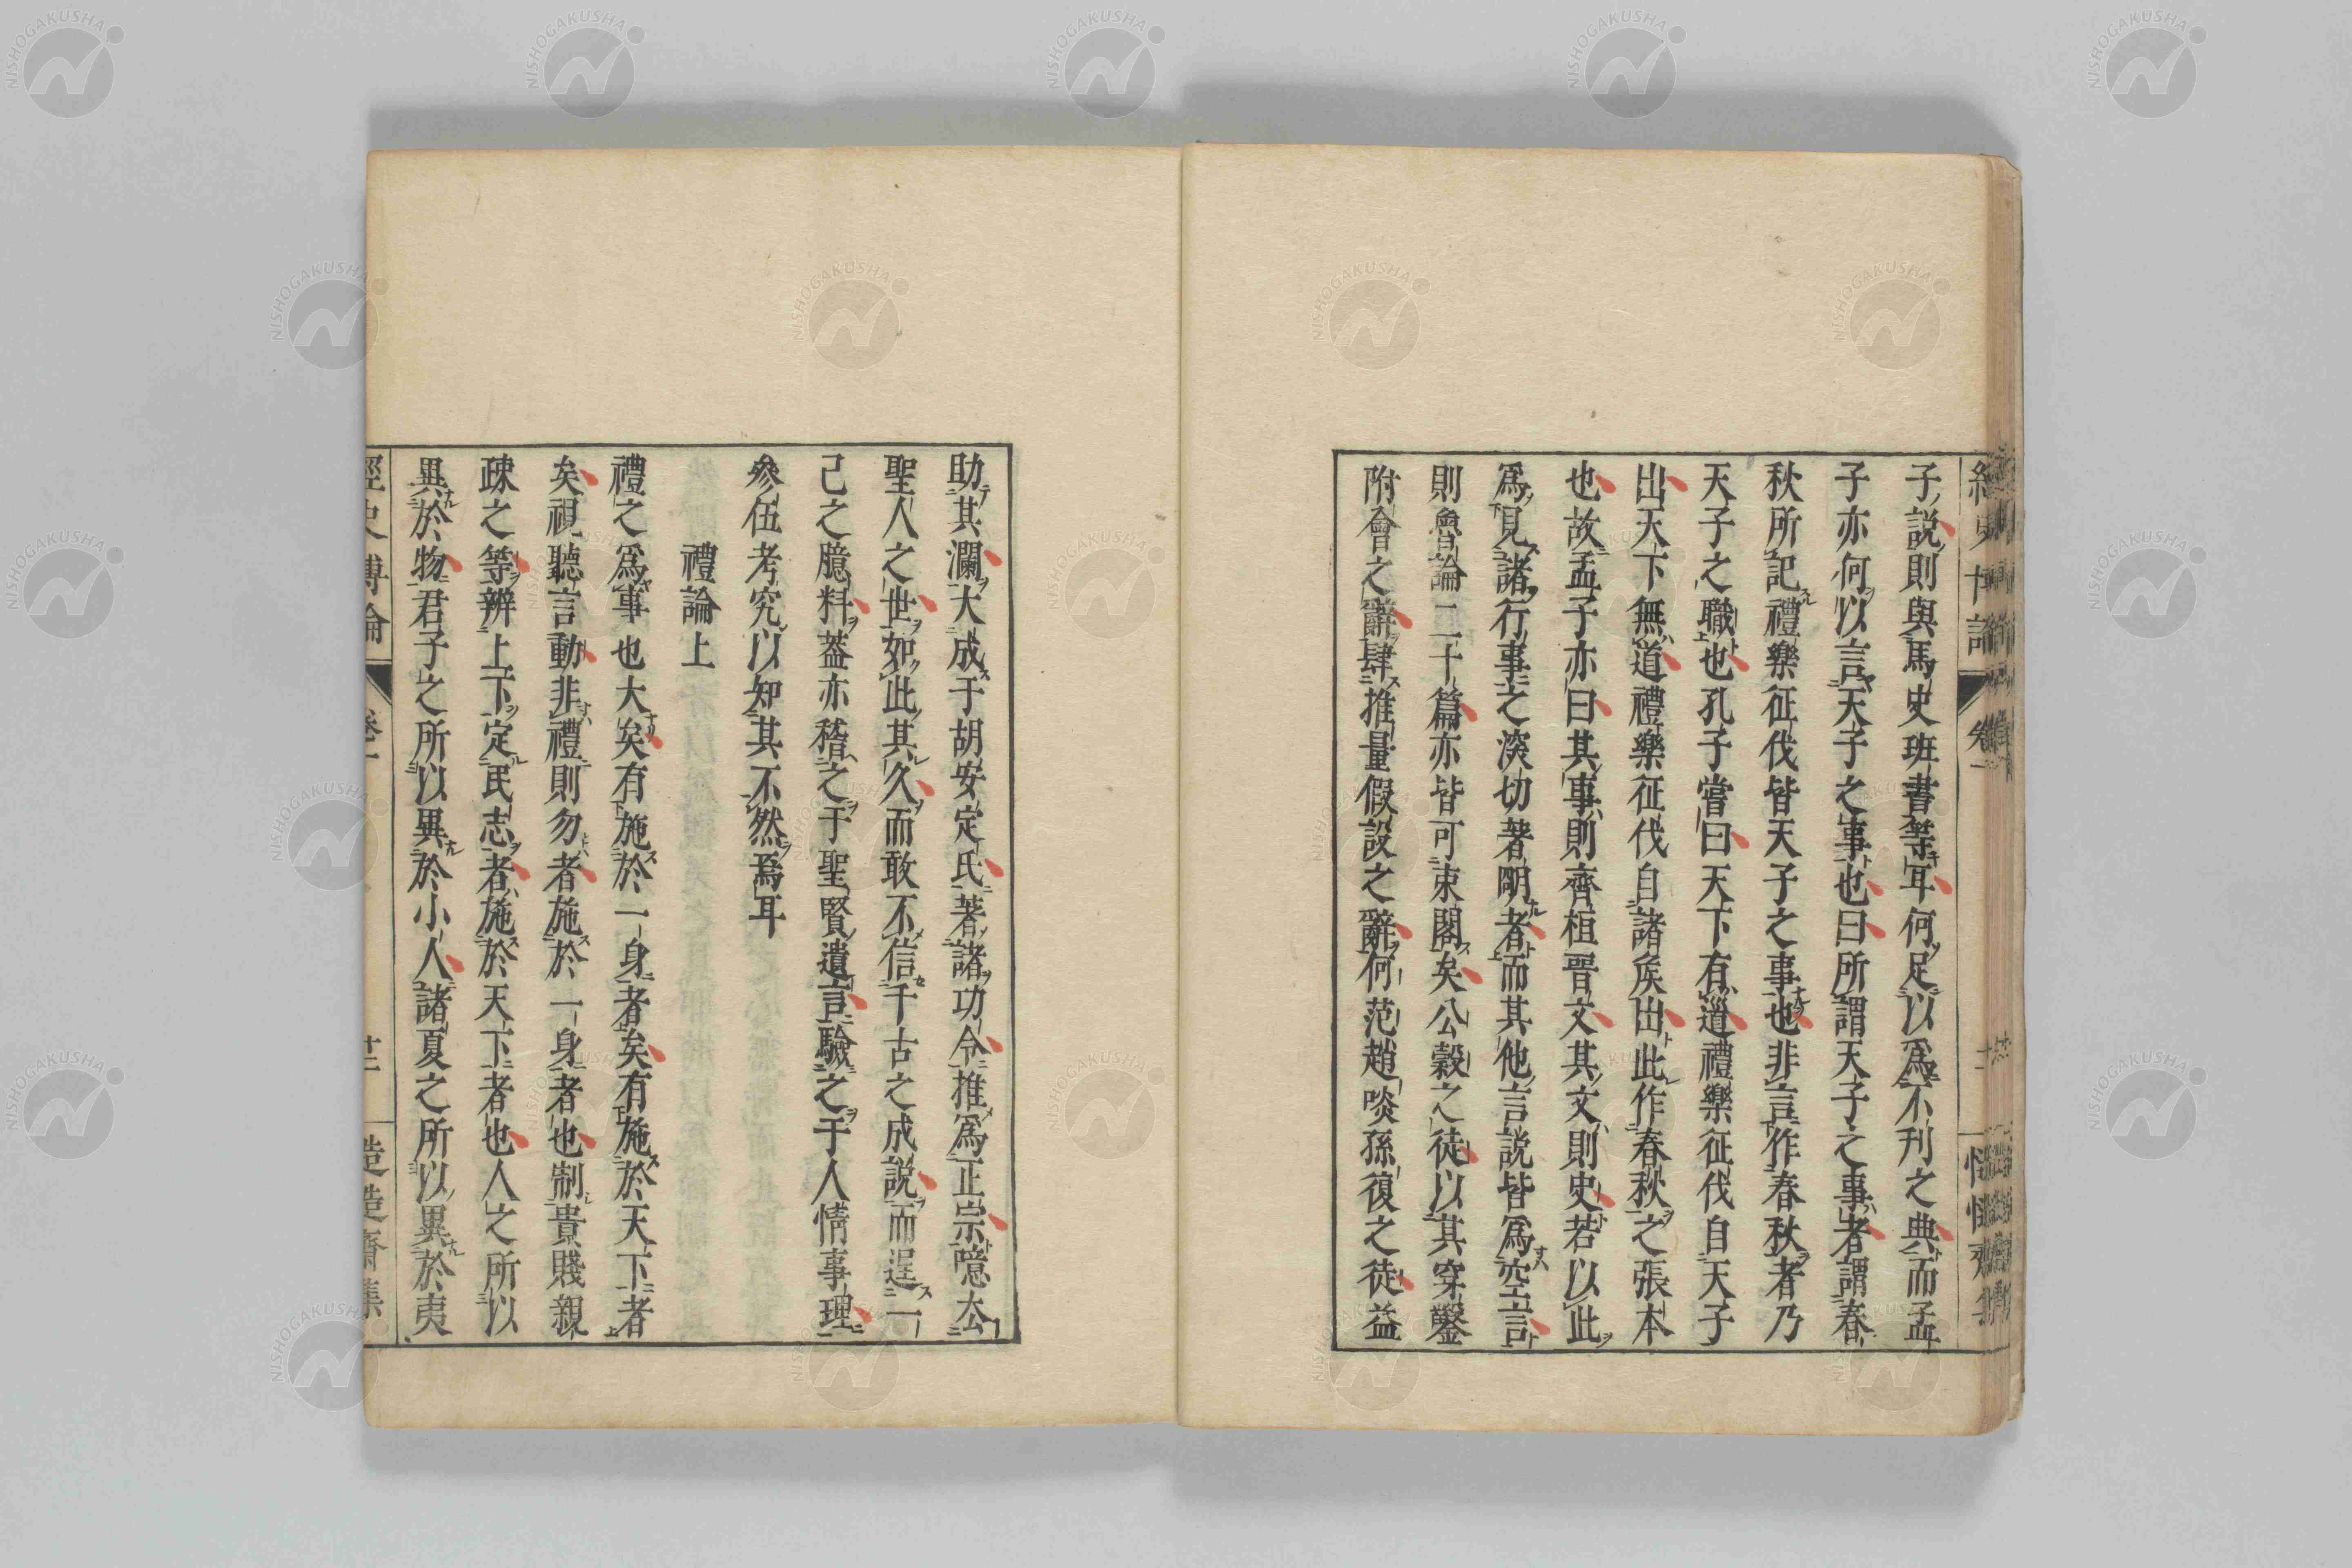 子說則與馬史班書等耳何足以爲不刊之典而孟
子亦何以言天子之事也曰所謂天子之事者謂春
秋所記禮樂征伐皆天子之事也非言作春秋者乃
天子之職也孔子嘗曰天下有道禮樂征伐自天子
出天下無道禮樂征伐自諸矦出此作春秋之張本
也故孟子亦曰其事則齊桓晋文其文則史若以此
爲見諸行事之深切著明者而其他言說皆爲空言
則魯論二十篇亦皆可束閣矣公穀之徒以其穿鑿
附會之辭肆推量假設之辭何范趙啖孫復之徒益
助其瀾大成于胡安定氏著諸功令推爲正宗噫去
聖人之世如此其久而敢不信千古之成說而逞一
己之臆料葢亦稽之于聖賢遺言驗之于人情事理
參伍考究以知其不然焉耳
禮論上
禮之爲事也大矣有施於一身者矣有施於天下者
矣視聽言動非禮則勿者施於一身者也制貴賤親
疎之等辨上下定民志者施於天下者也人之所以
異於物君子之所以異於小人諸夏之所以異於夷
經史博論
卷一
十二
NISHOGAKUSHA